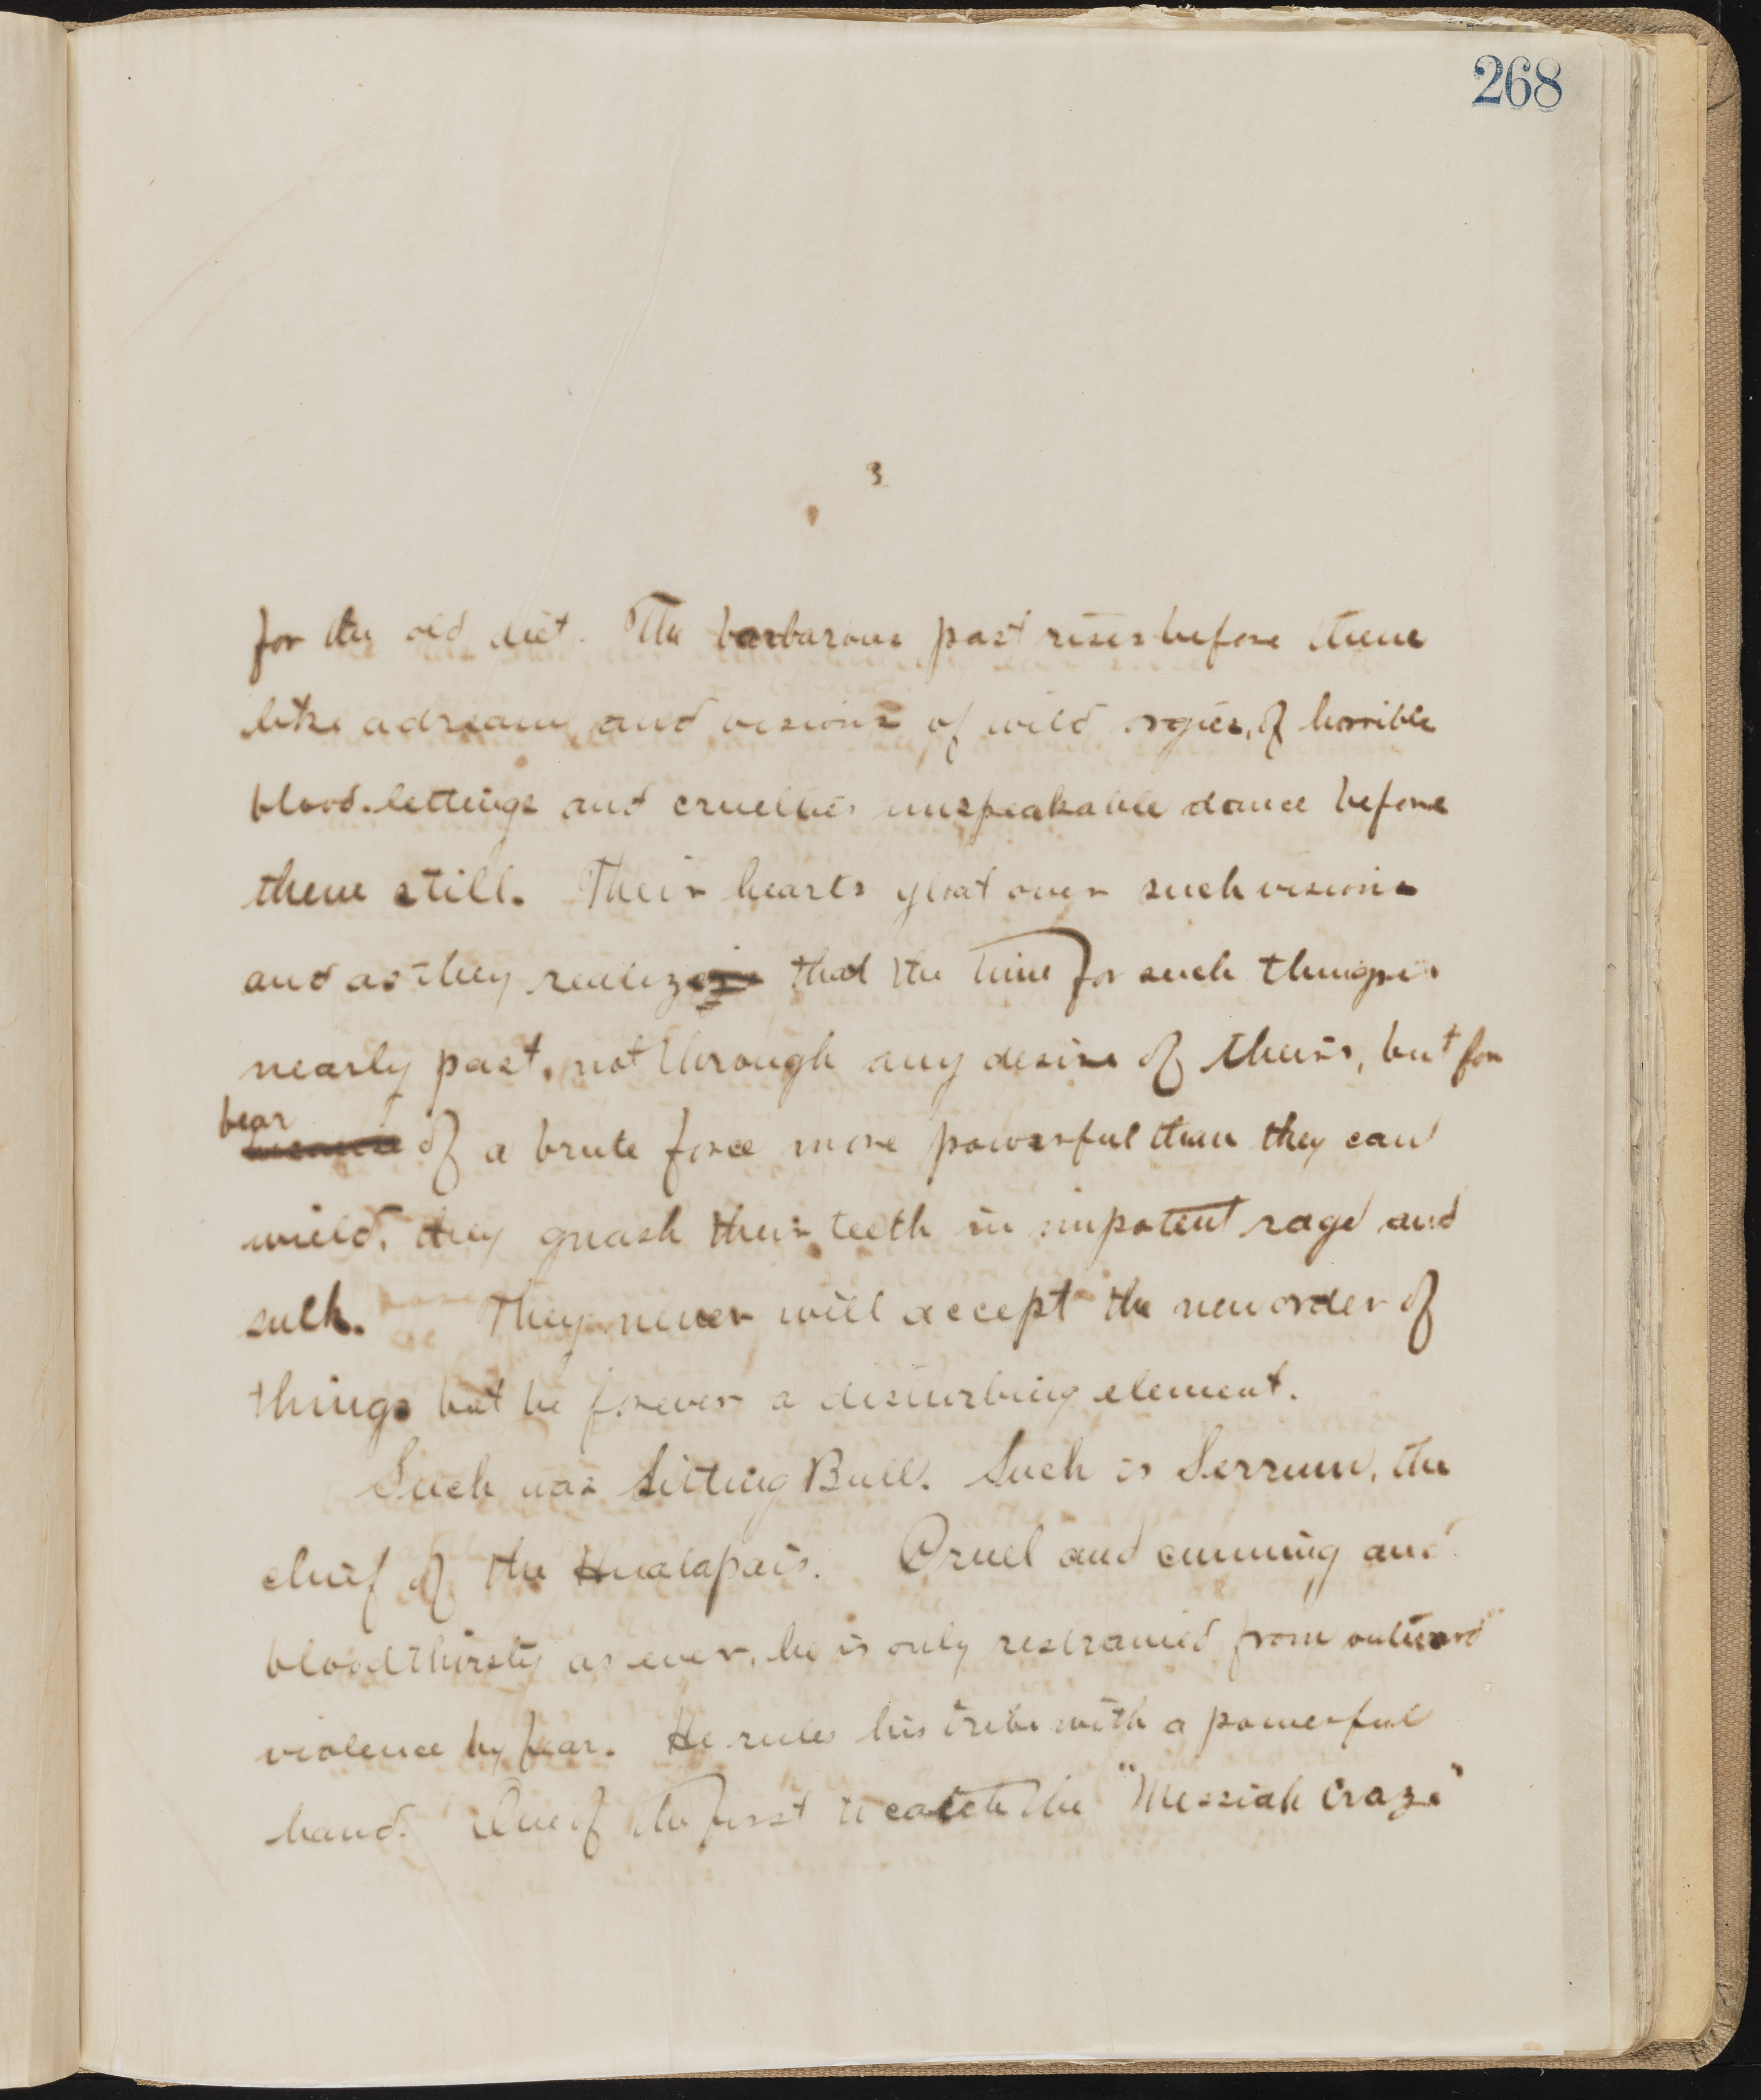 268
3
for the old diet. The barbarous past rises before them
like a dream, and visions of wild orgies, of horrible
blood-lettings and cruelties unspeakable dance before
them still. Their hearts gloat over such visions
and as they realize that the time for such things is
nearly past, not through any desire of theirs, but for
bear
because of a brute force more powerful than they can
wield, they gnash their teeth in impotent rage and
sulk. They never will accept the new order of
things but be forever a disturbing element.
Such was Sitting Bull. Such is Serrum, the
chief of the Hualapais. Cruel and cunning and
bloodthirsty as ever, he is only restrained from outward
violence by fear. He rules his tribe with a powerful
hand. One of the first to catch the "Messiah Craze"